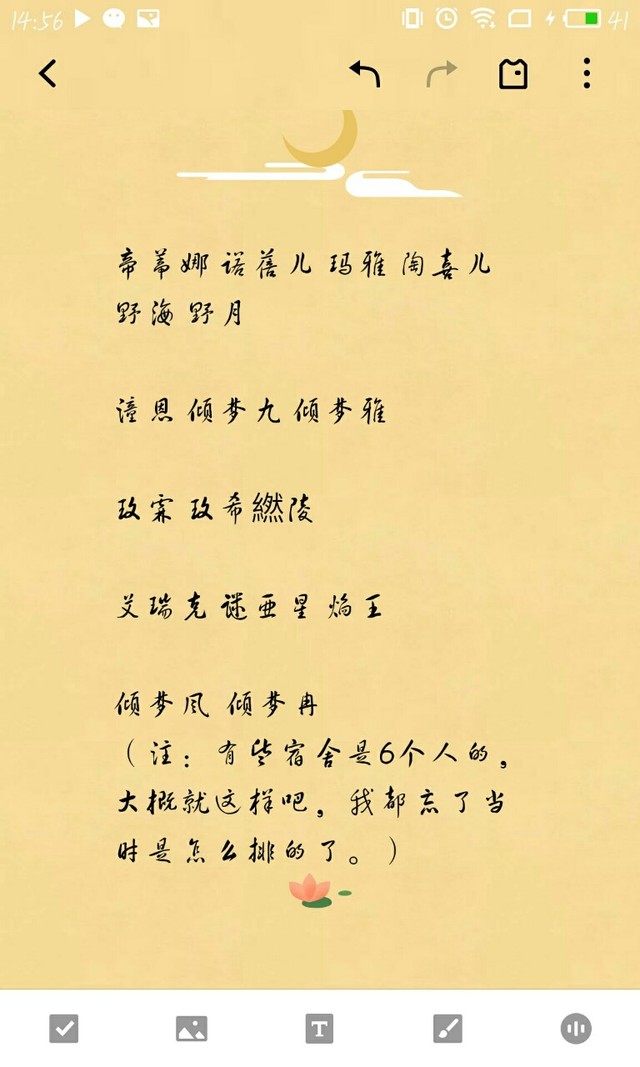 14:56
41
帝蒂娜 诺蓓儿 玛雅 陶喜儿
野海 野月
潼恩 倾梦九 倾梦雅
玫霖 玫希繎陵
艾瑞克 谜亚星 焰王
倾梦风 倾梦冉
（注：有些宿舍是6个人的，
大概就这样吧，我都忘了当
时是怎么排的了。）
T